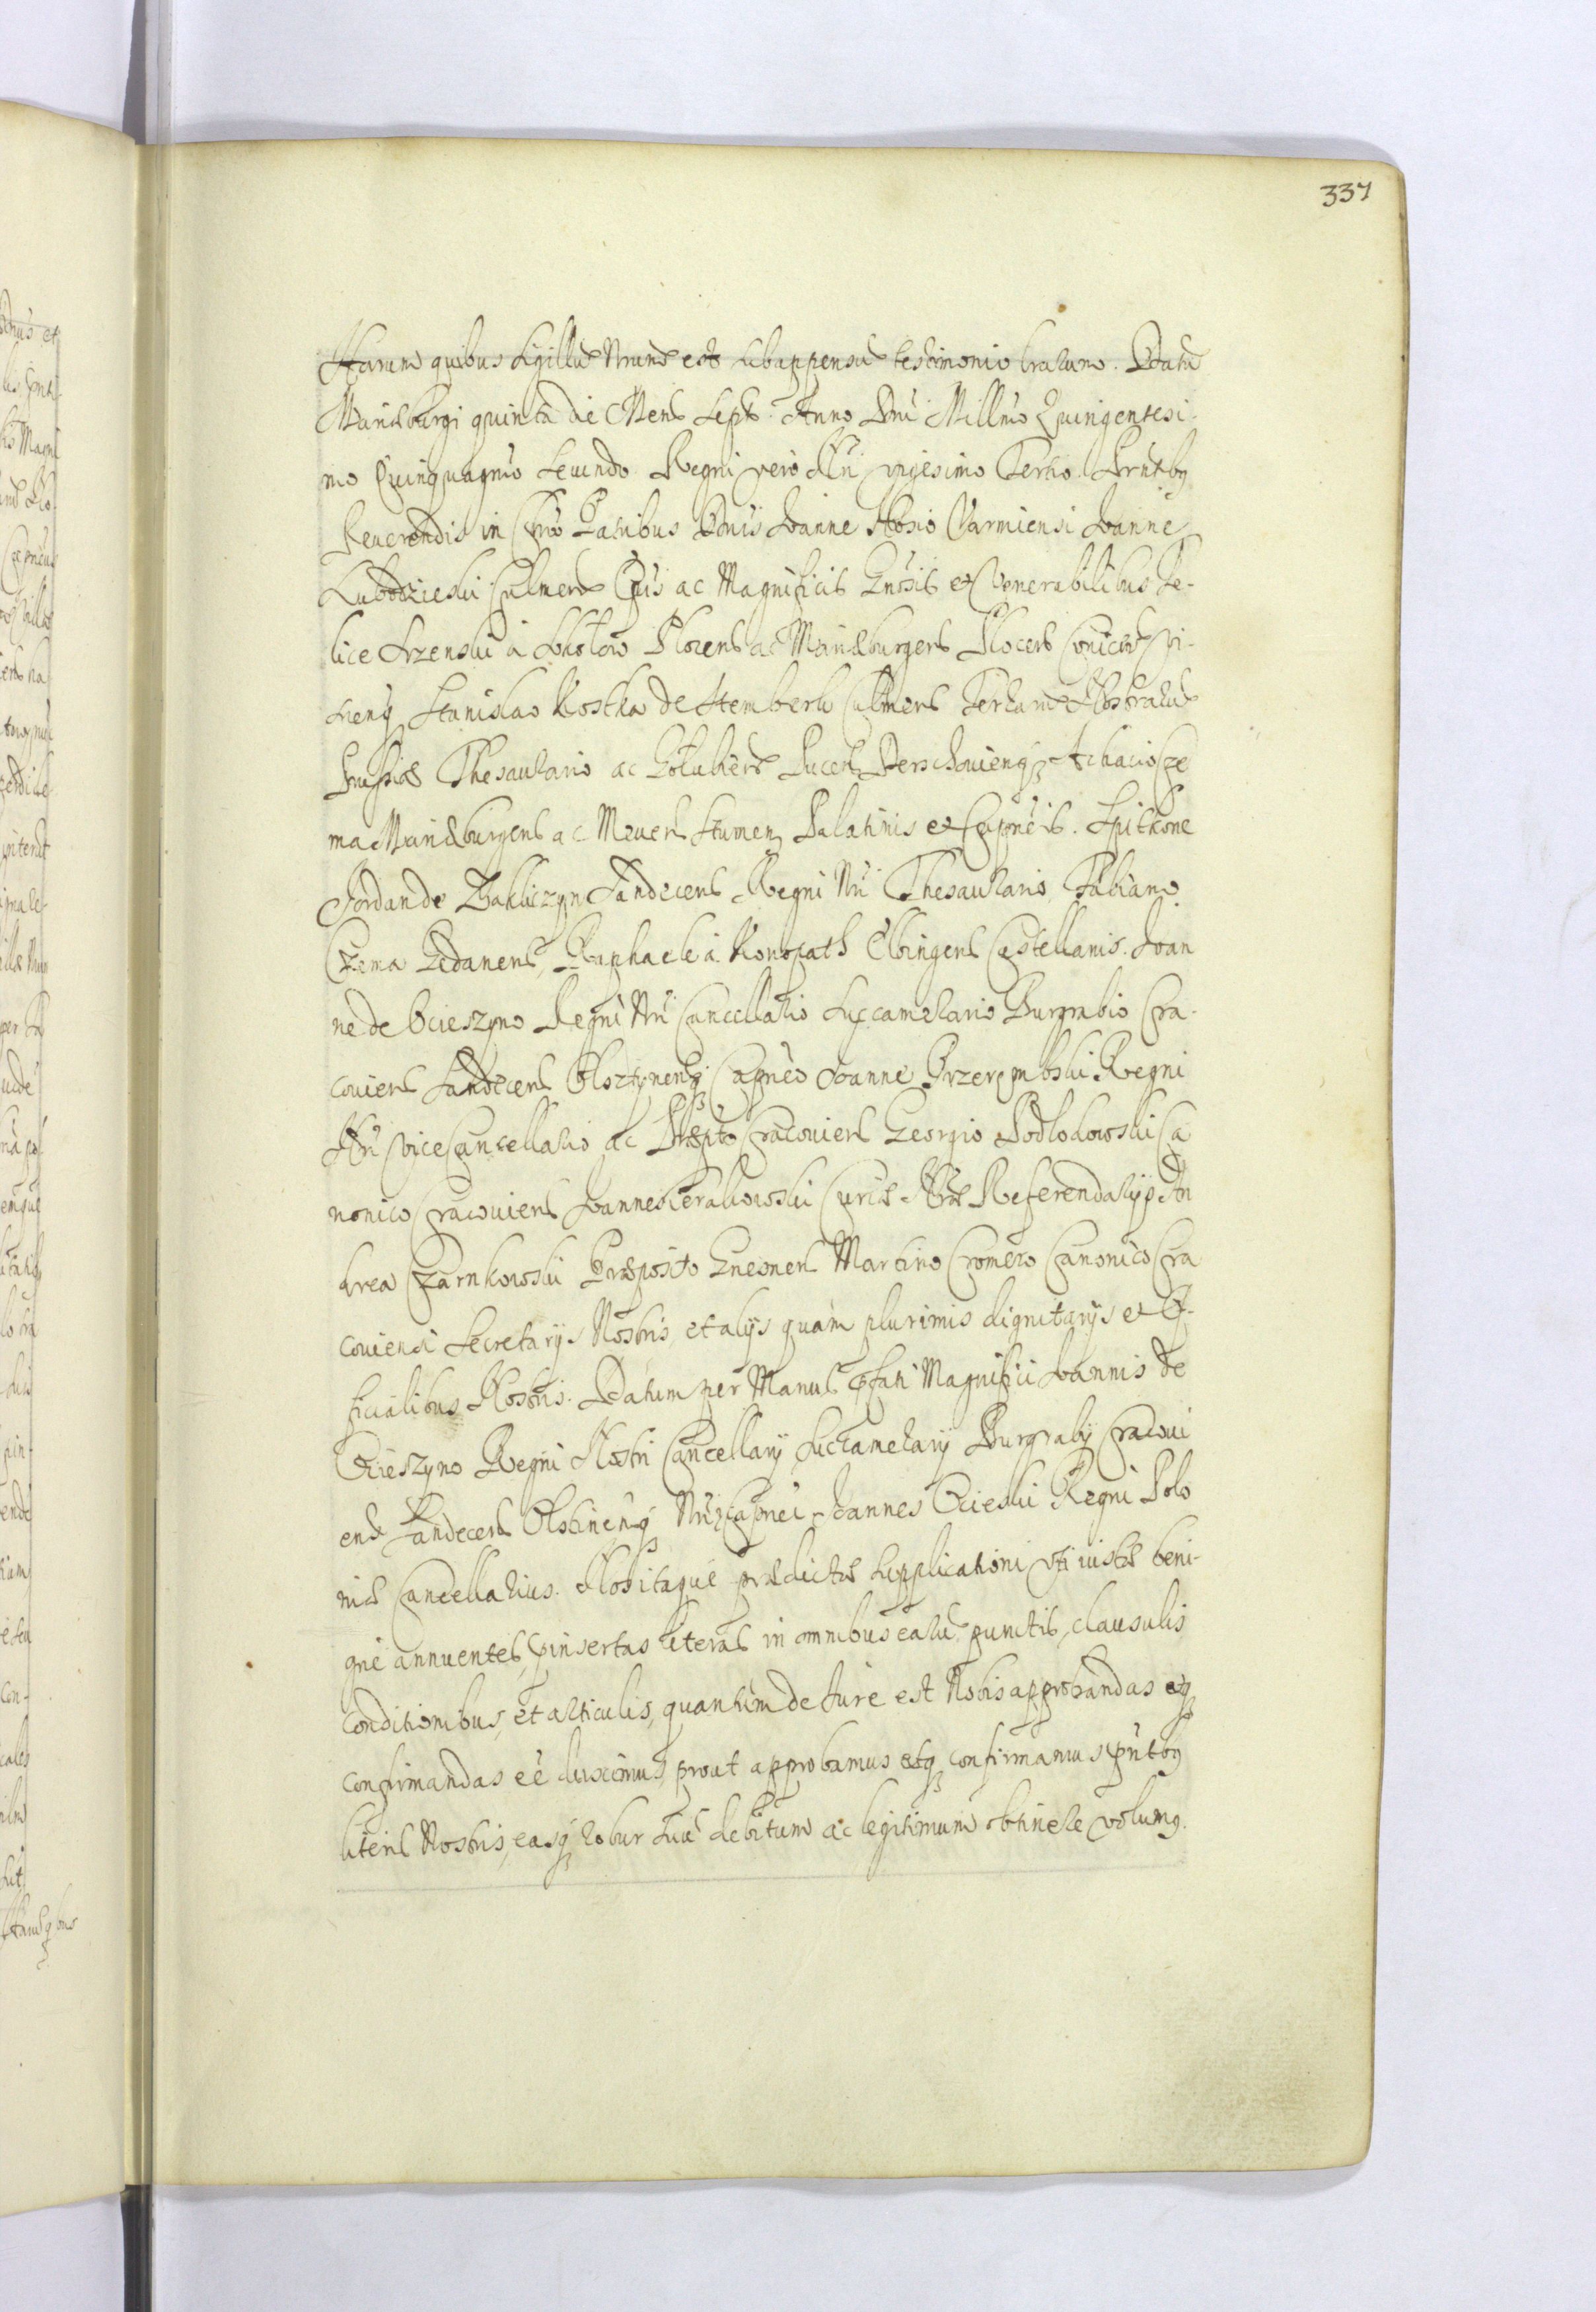 337
Harum quibus Sigillu Nrum est subappensu testimonio lrarum. Datu
Mariæburgi quinta die Mens Sept. Anno Dni Millmo Quingentesi-
mo Quinquagmo secundo Regni vero Nri vigesimo Tertio. Prntby
Reverendis in Chro Patribus Dnis Joanne Hosio Varmiensi Joanne
Lubodzieski Culmens Epis ac Magnificis Gnosis et Venerabilibus Fe-
lice Srzenski à Sokołow Plocens ac Mariæburgens Plocens
Stanislao Kostka de Stemberk Culmens Terrarum Nostraru
Prussiæ Thesaurario ac Golubiens Lucens Derschoviensq Achacio Cze
ma Mariæburgens ac Mevens Stumen Palatinis et Capneis. Spitkone
Jordan de Zakliczyn Sandecens Regni Nri Thesaurario, Fabiano
Czema Gedanens, Raphaele à Konopath Elbingens Castellanis. Joan
ne de Ocieszyno Regni Nri Cancellario Succamerario Burgrabio Cra-
coviens Sandecens Olsztynensq Capneo Joanne Przerembski Regni
Nri ViceCancellario ac Præpto Cracoviens Georgio Podlodowski Ca
nonico Cracoviens Joanne Sierakowski Curiæ Nræ Referendarijs An
drea Czarnkowski Præposito Gnesnens Martino Cromero Canonico Cra
coviensi Secretarijs Nostris, et alijs quam plurimis dignitarijs et Of-
ficialibus Nostris. Datum per Manus pfati Magnifici Joannis de
Ocieszyno Regni Nostri Cancellarij Succamerarij Burgrabij Cracovi
ens Sandecens Olstinensq Nri Capnei Joannes Ocieski Regni Polo
niæ Cancellarius. Nos itaque prædictæ supplicationi uti iustæ beni-
gne annuentes, pinsertas literas in omnibus earu punctis, clausulis,
conditionibus, et articulis, quantum de Jure est Nobis approbandas etq
confirmandas ee duximus, prout approbamus etq confirmamus pntby
literis Nostris, easq robur suu debitum ac legitimum obtinere volumq.